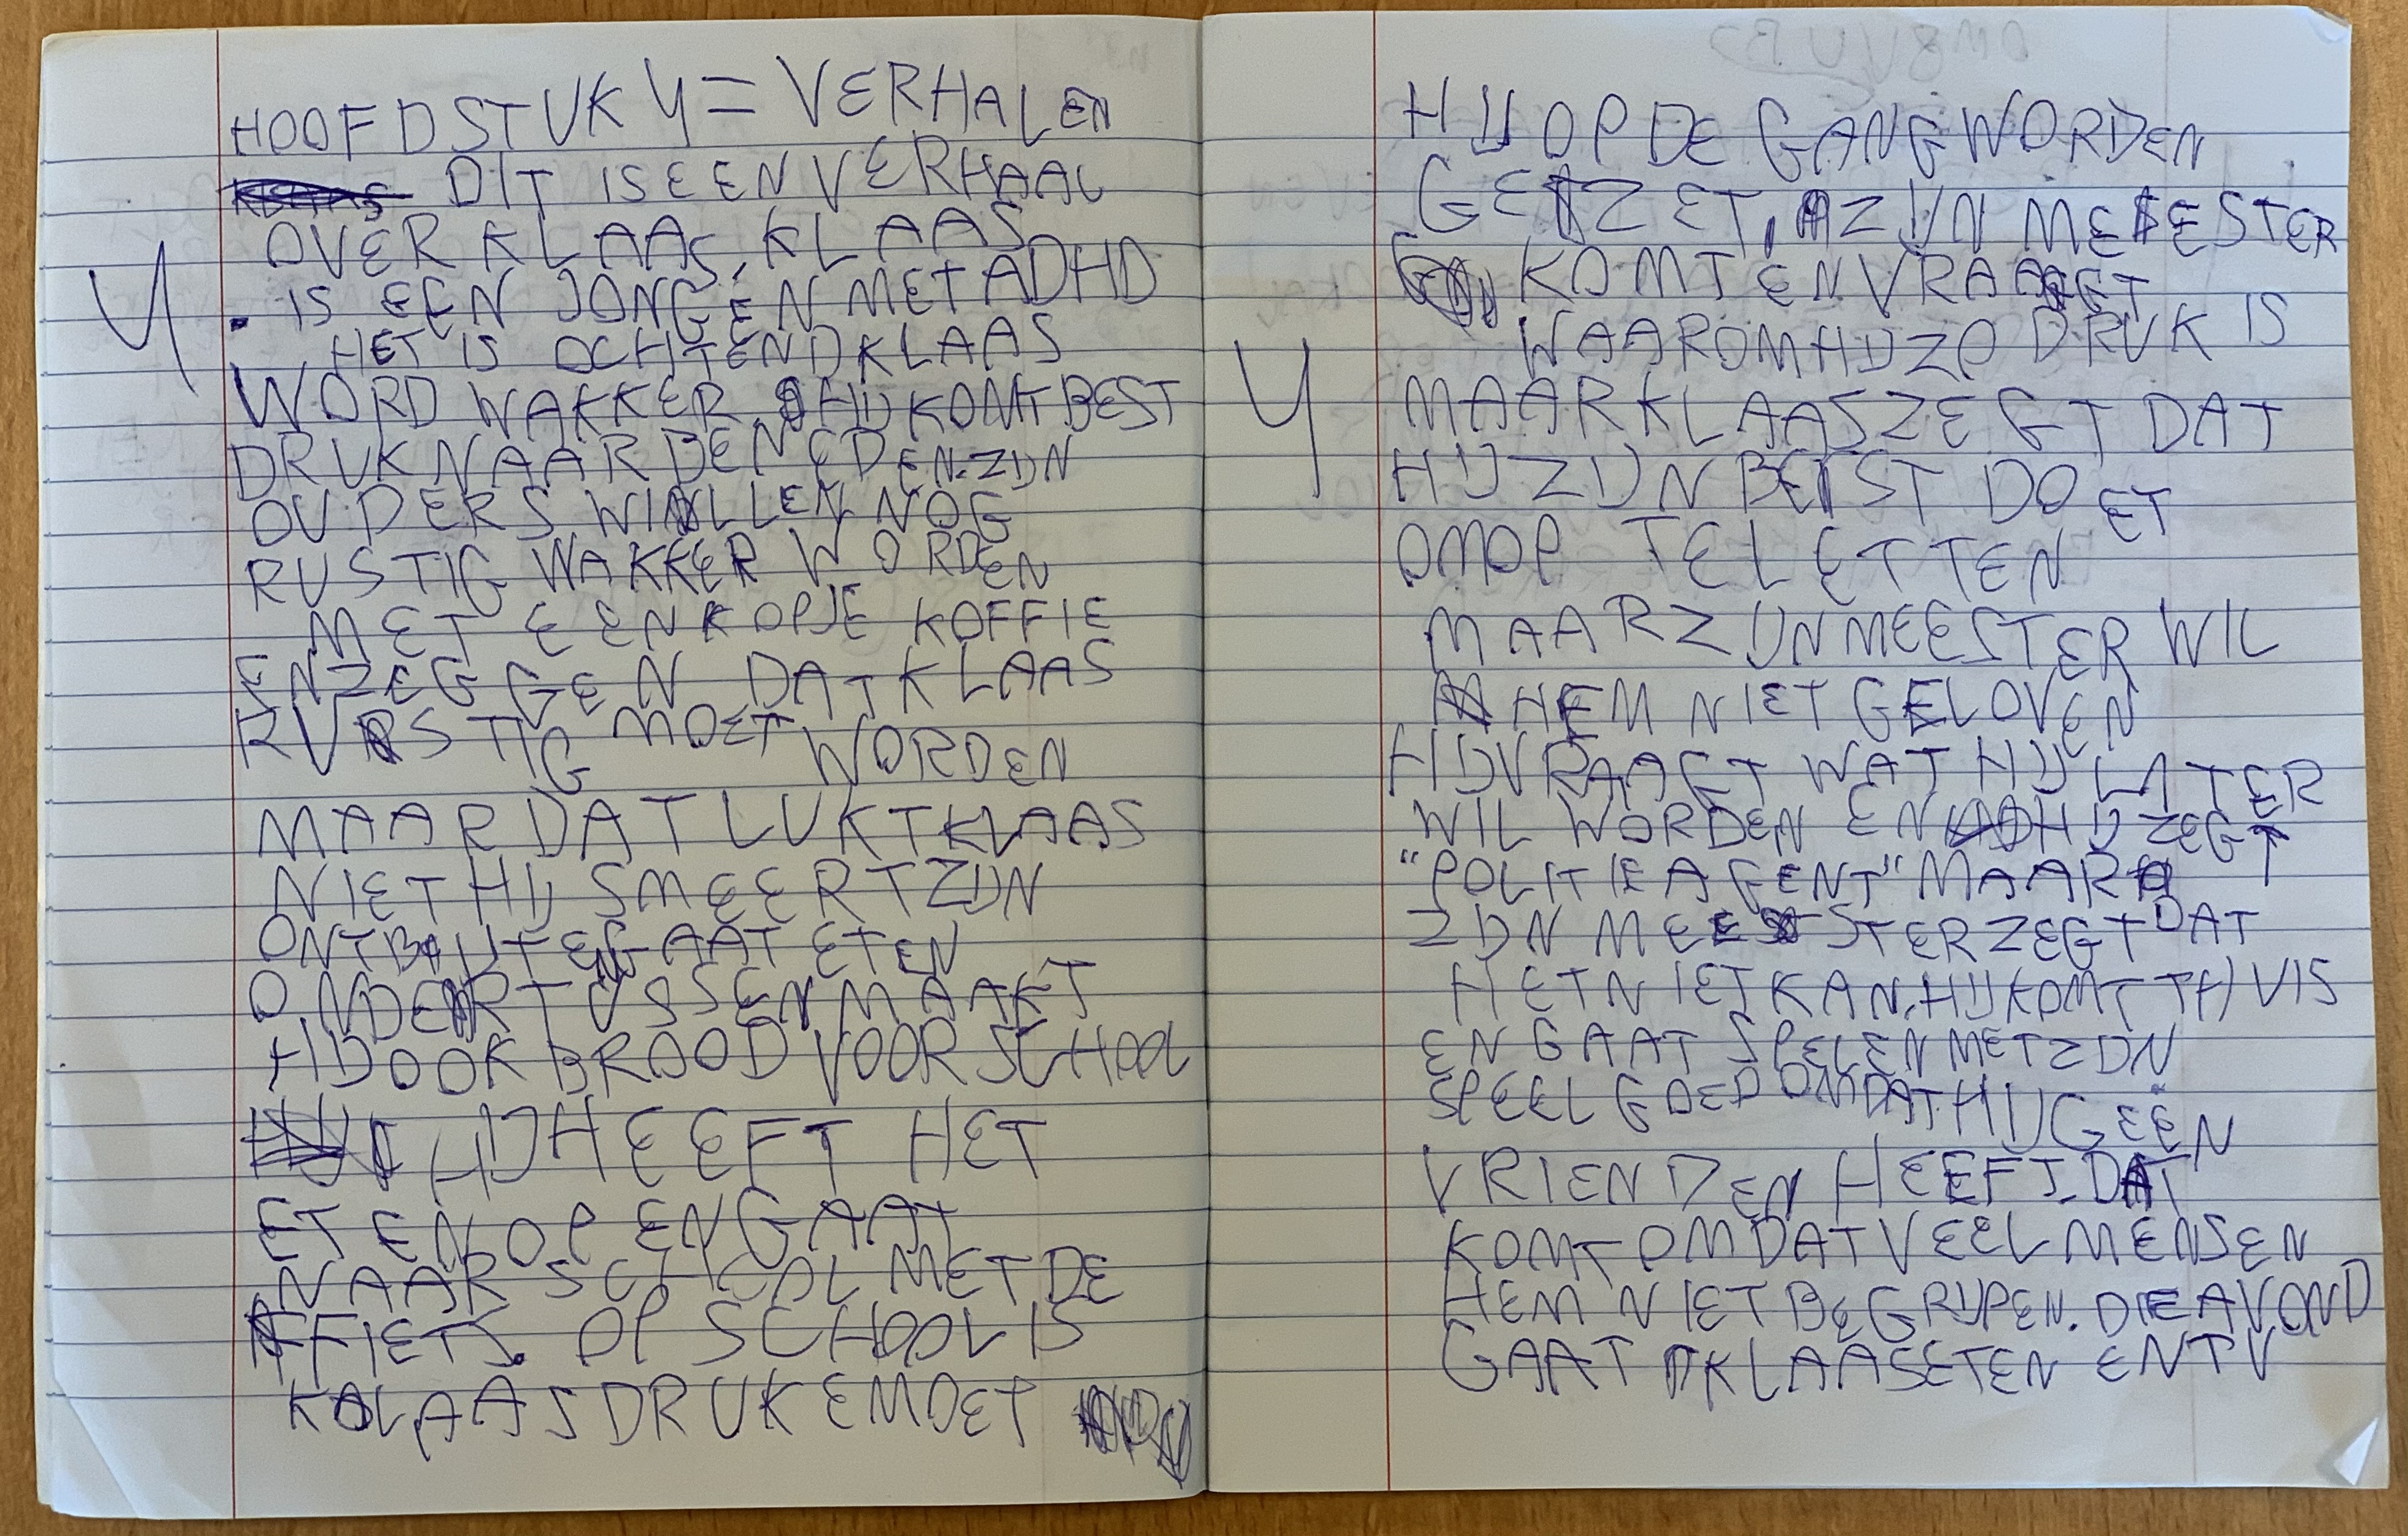 HOOFDSTUK 4 = VERHALEN
DIT IS EEN VERHAAL
OVER KLAAS, KLAAS
IS EEN JONGEN MET ADHD
4
HET IS OCHTEND KLAAS
WORD WAKKER, HIJ KOMT BEST
DRUK NAAR BENEDEN. ZIJN
OUDERS WILLEN NOG
RUSTIG WAKKER WORDEN
MET EEN KOPJE KOFFIE
EN ZEGGEN DAT KLAAS
RUSTIG MOET WORDEN
MAAR DAT LUKT KLAAS
NIET HIJ SMEERT ZIJN
ONTBIJT EN GAAT ETEN
ONDERTUSSEN MAAKT
HIJ OOK BROOD VOOR SCHOOL
HIJ HEEFT HET
ETEN OP EN GAAT
NAAR SCHOOL MET DE
FIETS. OP SCHOOL IS
KLAAS DRUK EMOET
HIJ OP DE GANG WORDEN
GEZET, ZIJN MEESTER
KOMT EN VRAAGT
WAAROM HIJ ZO DRUK IS
4
MAAR KLAAS ZEGT DAT
HIJ ZIJN BEST DOET
OM OP TE LETTEN
MAAR ZIJN MEESTER WIL
HEM NIET GELOVEN
HIJ VRAAGT WAT HIJ LATER
WIL WORDEN EN HIJ ZEGT
"POLITIE AGENT" MAAR
ZIJN MEESTER ZEGT DAT
HET NIET KAN. HIJ KOMT THUIS
EN GAAT SPELEN MET ZIJN
SPEELGOED OMDAT HIJ GEEN
VRIENDEN HEEFT. DAT
KOMT OMDAT VEEL MENSEN
HEM NIET BEGRIJPEN. DIE AVOND
GAAT KLAAS ETEN EN TV